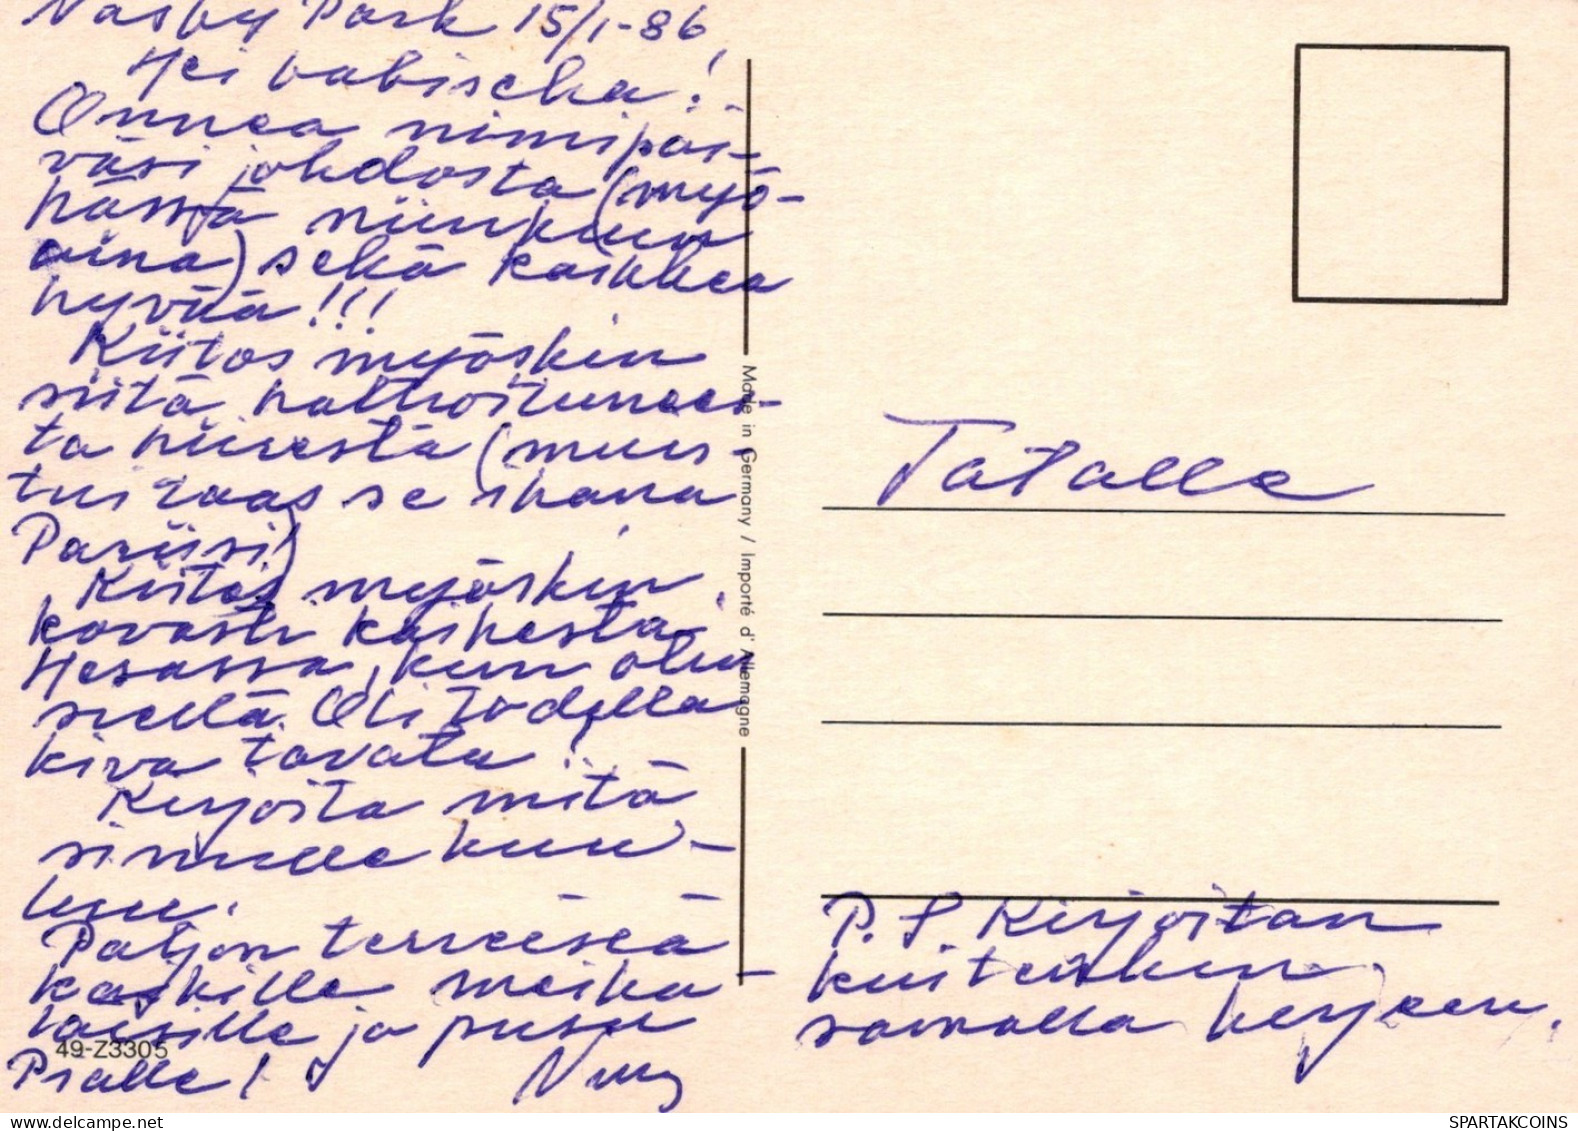 Näsby Park 15/1-86
Hei babischa!
Onnea nimipäi-
väsi johdosta (myö-
hässä niinkuin
aina) sekä kaikkea
hyvää!!!
Kiitos myöskin
siitä hattroitunees-
ta hiirestä (muis-
tui taas se ihana
Pariisi)
Kiitos myöskin
kovasti kaikesta
Hesassa, kun olin
siellä. Oli todella
kiva tavata!
Kirjoita mitä
sinulle kuu-
luu.
Paljon terveisiä
kaikille meikä
läisille ja pusu
Pialle!
49-Z3305
Made in Germany / Importé d'Allemagne
Tatalle
P.S. Kirjoitan
kuitenkin
samalla kirjeen.
SPARTAKCOINS
WWW.SPARTAKCOINS.COM